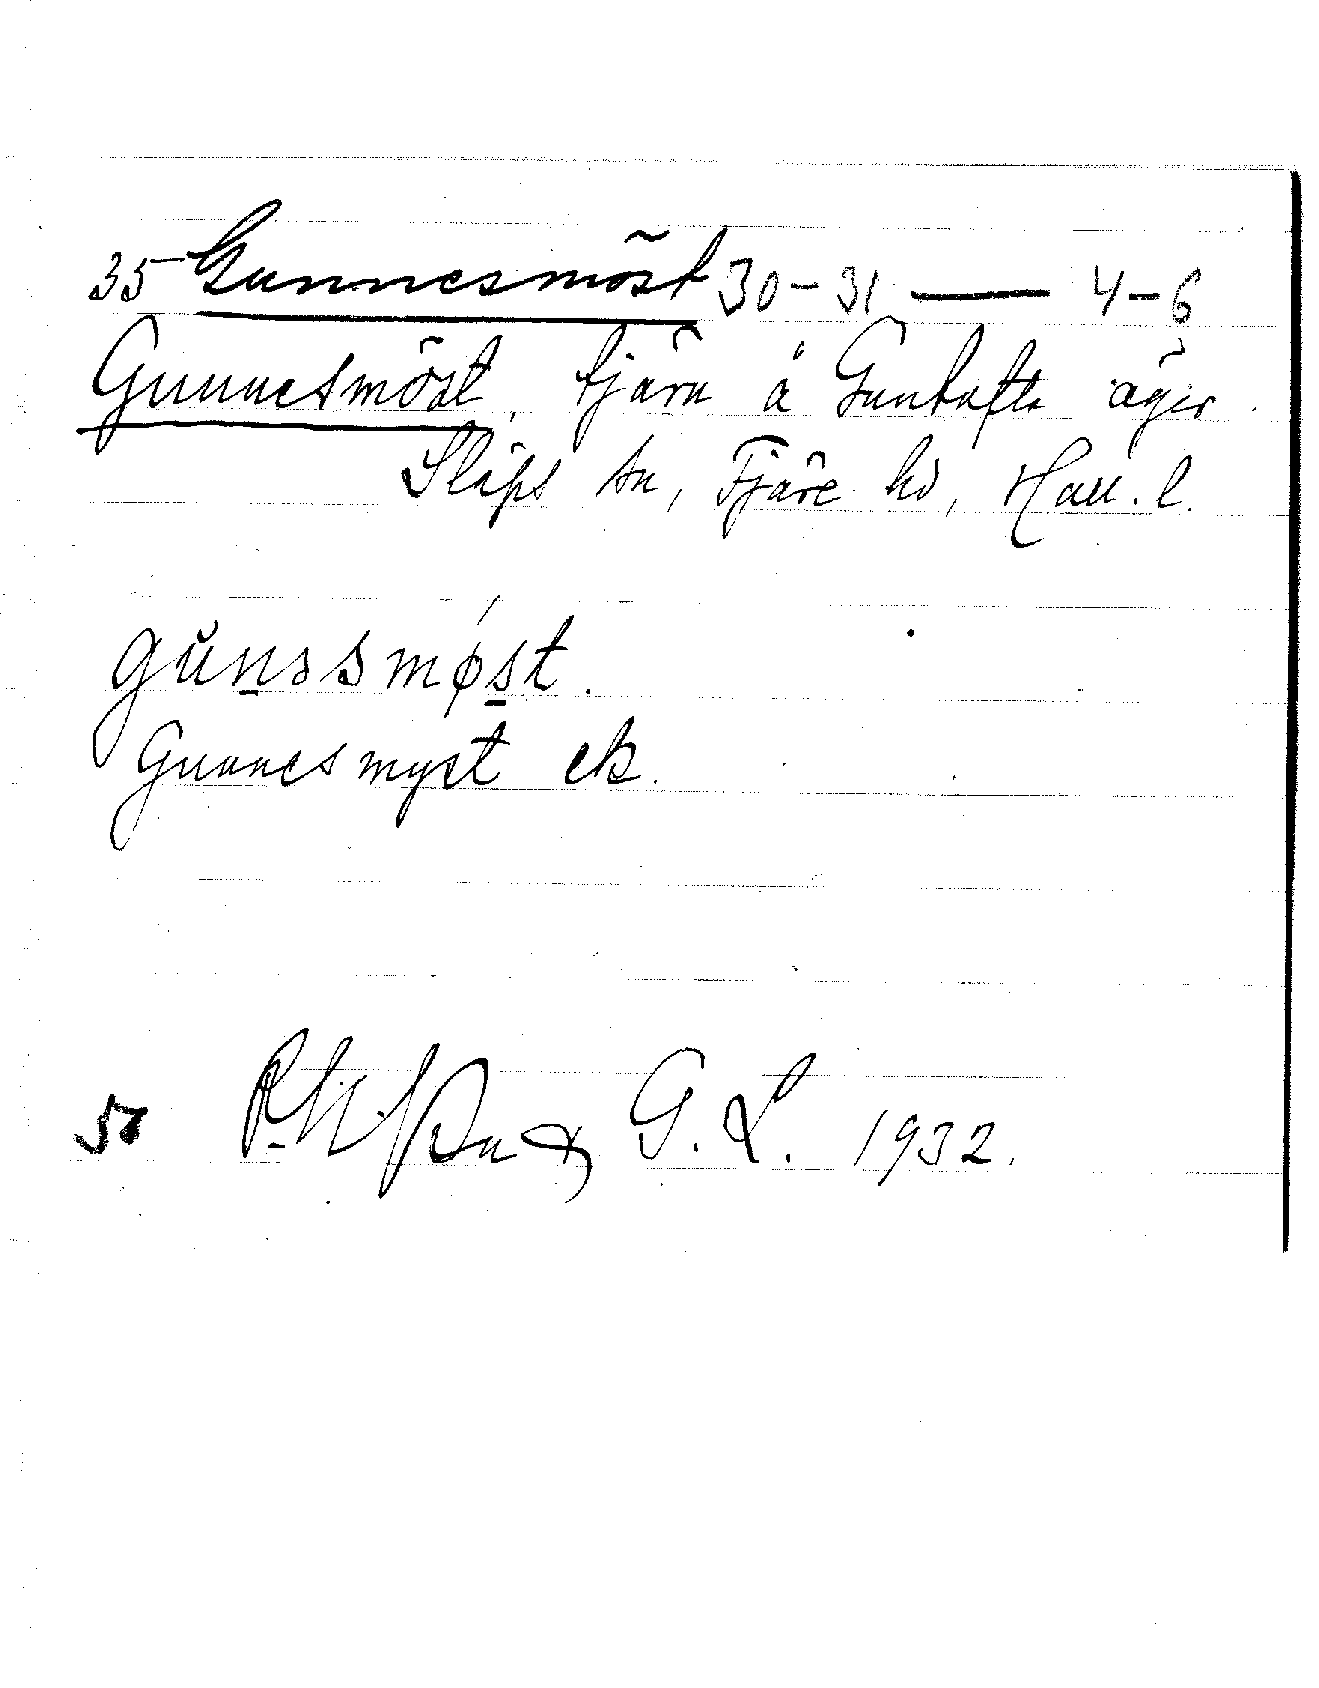 35 Gunnesmöst 30-31 — 4-6
Gunnesmöst, tjärn å Guntofta ägor.
Släps sn, Fjäre hd, Hall. l.
gŭnəsmǿst.
Gunnesmyst ek.
50 G. L. 1932.